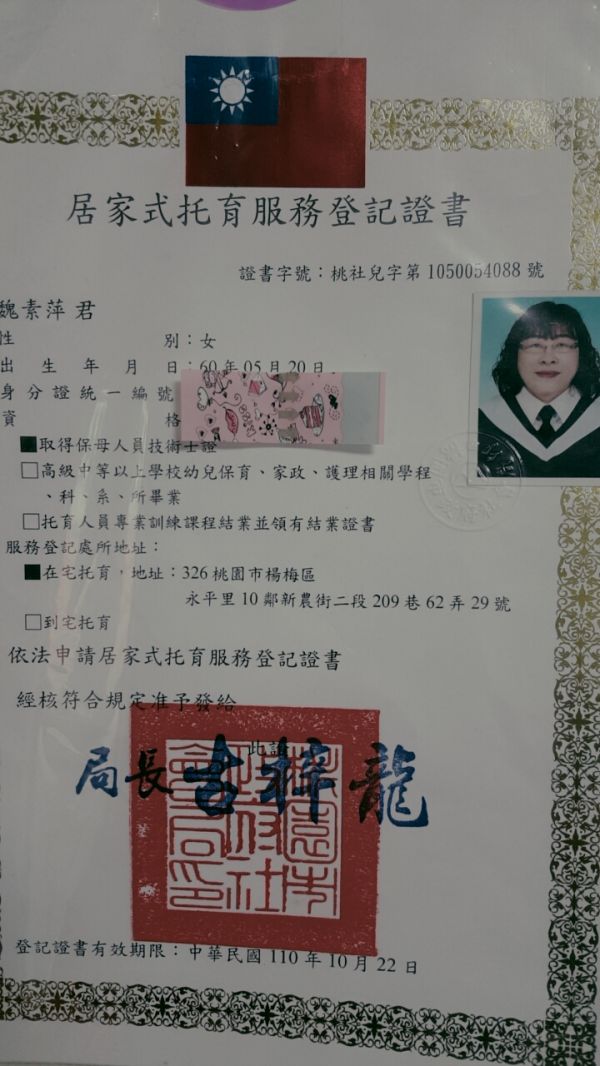 居家式托育服務登記證書
證書字號：桃社兒字第1050054088號
魏素萍 君
性別：女
出生年月日：60年05月20日
身分證統一編號
資格
■取得保母人員技術士證
□高級中等以上學校幼兒保育、家政、護理相關學程
、科、系、所畢業
□托育人員專業訓練課程結業並領有結業證書
服務登記處所地址：
■在宅托育，地址：326桃園市楊梅區
永平里10鄰新農街二段209巷62弄29號
□到宅托育
依法申請居家式托育服務登記證書
經核符合規定准予發給
此證
局長 古梓龍
桃園市政府社會局印
登記證書有效期限：中華民國110年10月22日